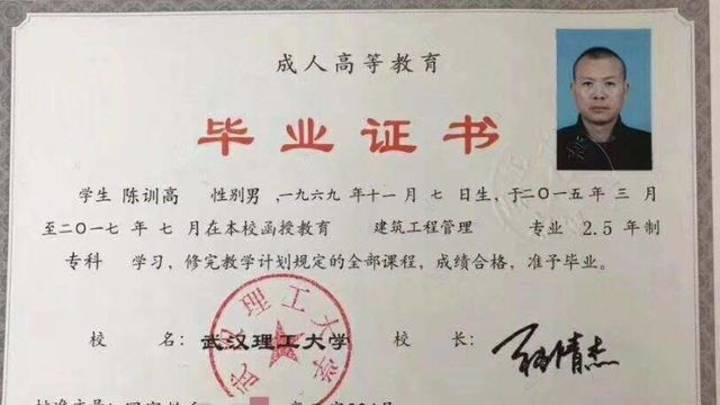 成人高等教育
毕业证书
学生 陈训高 性别男,一九六九 年十一月 七 日生,于二〇一五年 三 月
至二〇一七年 七 月在本校函授教育 建筑工程管理 专业 2.5 年制
专科 学习,修完教学计划规定的全部课程,成绩合格,准予毕业。
校 名:武汉理工大学 校 长:
武汉理工大学